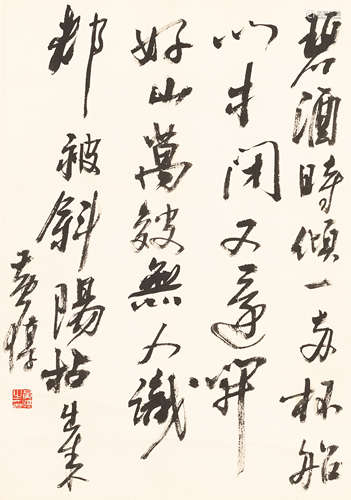 碧酒時傾一兩杯船
門才閉又還開
好山萬皺無人識
都被斜陽拈出來
黃惇